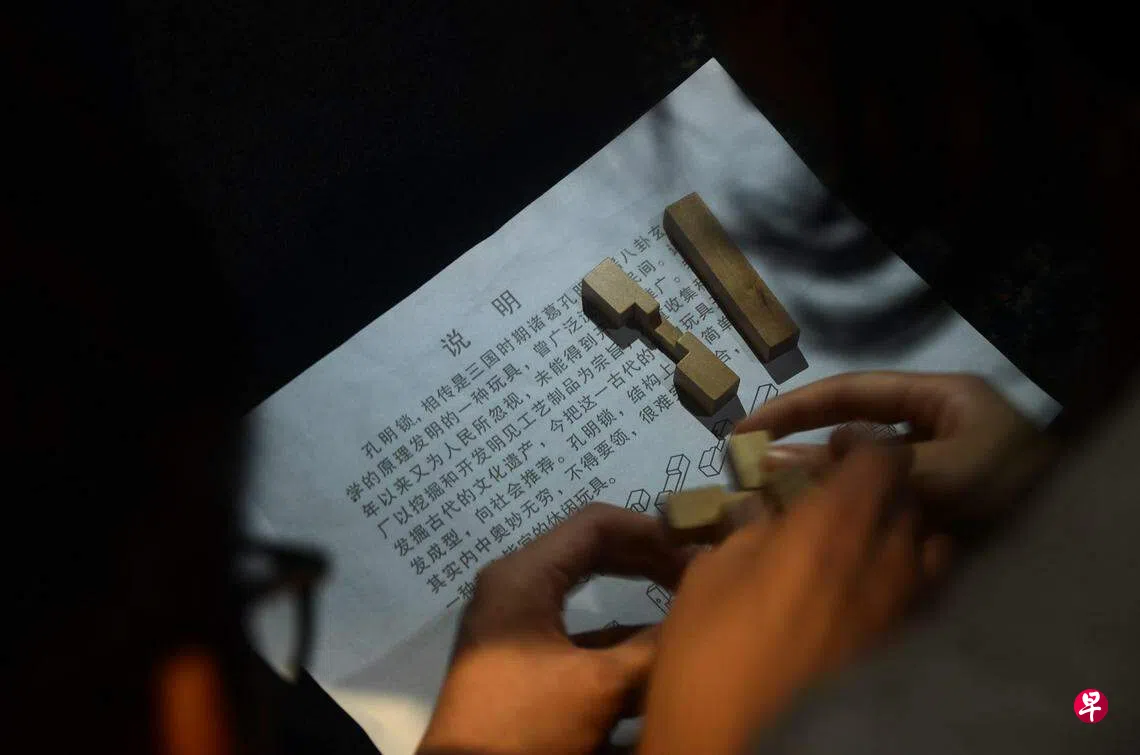 说 明
孔明锁,相传是三国时期诸葛孔明 八卦玄
学的原理发明的一种玩具,曾广泛 民间。
年以来又为人民所忽视,未能得到 推广。
厂以挖掘和开发明见工艺制品为宗旨 收集和
发掘古代的文化遗产,今把这一古代的 玩具
发成型,向社会推荐。孔明锁,结构上 简单
其实内中奥妙无穷,不得要领,很难 合,
一种 的休闲玩具。
早